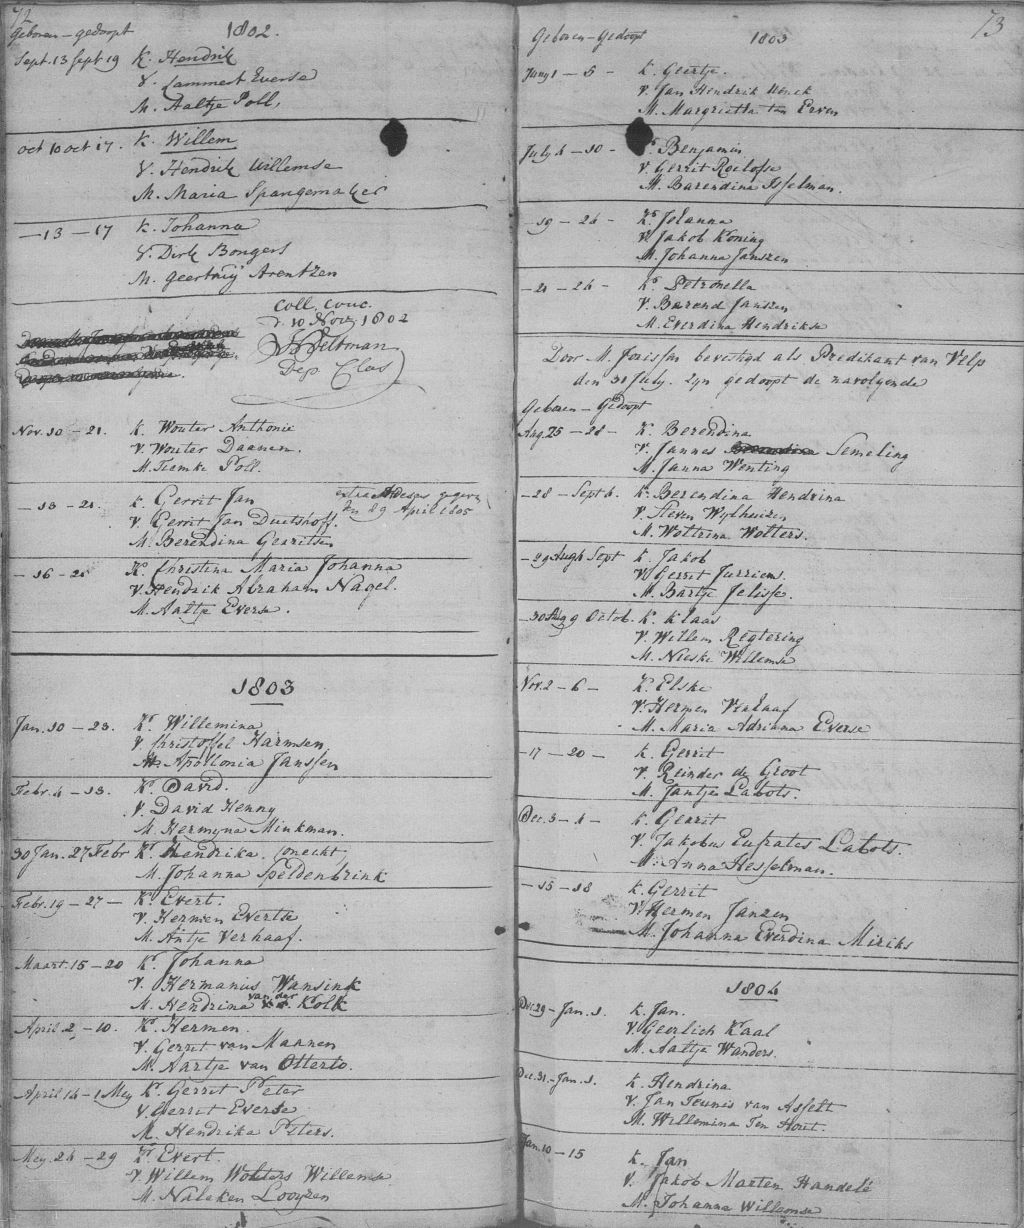 72
Geboren - gedoopt 1802.
Sept. 13 Sept 19 K. Hendrik
V. Lammert Everse
M. Aaltje Poll,
Oct 10 oct 17. K. Willem
V. Hendrik Willemse
M. Maria Spangemaker
- 13 - 17 K. Johanna
V. Dirk Bongers
M. Geertruij Arentzen
Coll. conc.
d. 10 Nov. 1802
Veltman
Dep. Clas
Nov. 10 - 21. K. Wouter Anthonie
V. Wouter Daanen.
M. Poll.
- 13 - 21. K. Gerrit Jan
V. Gerrit Jan
M. Berendina Gerritsen
extra gegeven
den 29 April 1805
- 16 - 21 K. Christina Maria Johanna
V. Hendrik Abraham Nagel.
M. Aaltje Everse.
1803
Jan. 10 - 23. K. Willemina
V. Christoffel Harmsen
M. Apollonia Janssen
Febr. 4 - 13. K. David.
V. David Henny
M. Hermyna Minkman.
30 Jan. 27 Febr K. Hendrika, onecht,
M. Johanna Speldenbrink
Febr. 19 - 27 - K. Evert.
V. Hermen Evertse
M. Antje Verhaaf.
Maart. 15 - 20 K. Johanna
V. Hermanus Wansink
M. Hendrina van der Kolk
April. 2 - 10. K. Hermen.
V. Gerrit van Maanen
M. Aartje van Otterlo.
April 14 - 1 Mey K. Gerrit Peter
V. Gerrit Everse
M. Hendrika Peters.
Mey. 24 - 29 K. Evert.
V. Willem Wolters Willemse
M. Naleken Looyzen
73
Geboren - Gedoopt 1803
Juny 1 - 5 - K. Geertje.
V. Jan Hendrik
M. Margrietha ten Erven
July 4 - 10 - K. Benjamin
V. Gerrit Roelofse
M. Barendina Isselman.
- 19 - 24 - K. Johanna
V. Jakob Koning
M. Johanna Janszen
- 21 - 24 - K. Petronella
V. Barend Janszen
M. Everdina Hendrikse
Door M. Jorissen bevestigd als Predikant van Velp
den 31 July. zyn gedoopt de navolgende
Geboren - Gedoopt
Aug. 25 - 28 - K. Berendina
V. Jannes Semeling
M. Janna Wenting
- 28 - Sept 4. K. Berendina Hendrina
V. Steven Wylhuizen
M. Woltrina Wolters.
- 29 Aug 4 Sept K. Jakob
V. Gerrit Jurriens.
M. Bartje Jelisse.
- 30 Aug 9 Octob. K. Klaas
V. Willem Regtering
M. Neeske Willemse
Nov. 2 - 6 - K. Elske
V. Hermen Verhaaf
M. Maria Adriana Everse
- 17 - 20 - K. Gerrit
V. Reinder de Groot
M. Jantje Labots.
Dec. 3 - 4 - K. Gerrit
V. Jakobus Eufrates Labots.
M. Anna Hesselman.
- 15 - 18 K. Gerrit
V. Hermen Janzen
M. Johanna Everdina Miriks
1804
Dec. 29 - Jan. 1. K. Jan.
V. Geerlich Kaal
M. Aaltje Wanders.
Dec. 31. - Jan. 1. K. Hendrina
V. Jan Teunis van Asselt
M. Willemina Ten Hout.
Jan. 10 - 15 K. Jan
V. Jakob Marten Handele
M. Johanna Willemse